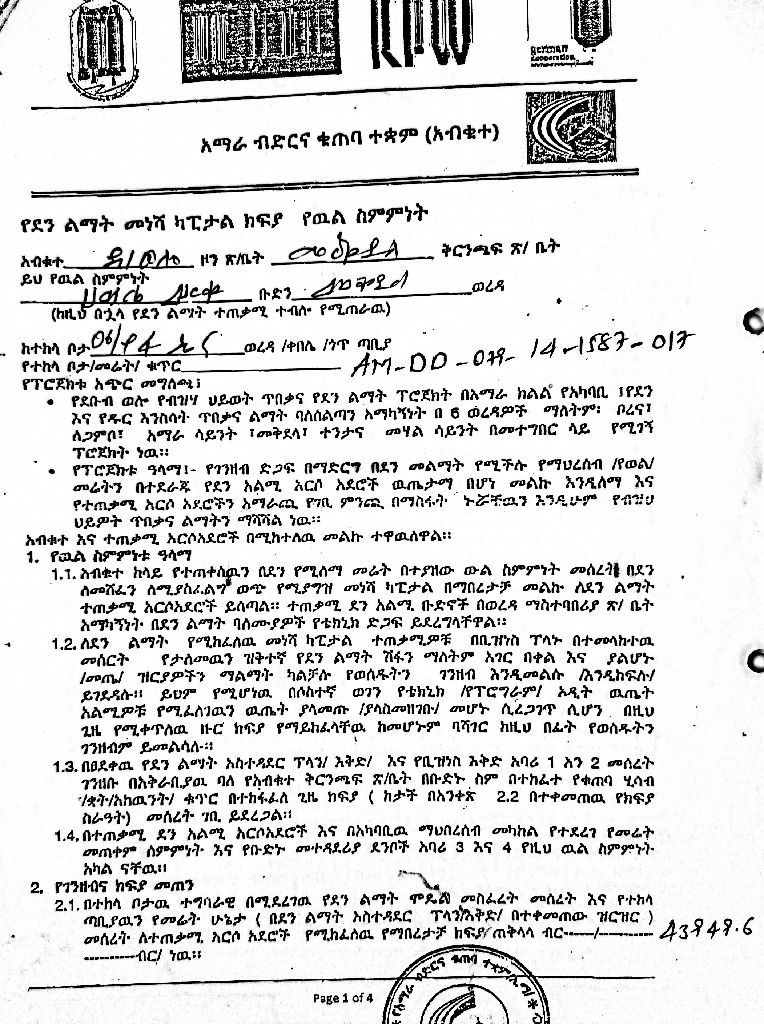 KFW
german
cooperation
አማራ ብድርና ቁጠባ ተቋም (አብቁተ)
የደን ልማት መነሻ ካፒታል ክፍያ የዉል ስምምነት
አብቁተ ደ/ወሎ ዞን ጽ/ቤት መቅደላ ቅርንጫፍ ጽ/ ቤት
ይህ የዉል ስምምነት
ቡድን መቅደላ ወረዳ
(ከዚህ በኋላ የደን ልማት ተጠቃሚ ተብሎ የሚጠራዉ)
ከተከላ ቦታ 06/ ወረዳ /ቀበሌ /ጎጥ ጣቢያ
የተከላ ቦታ/መሬት/ ቁጥር AM-DO-079-14-1587-017
የፕሮጀክቱ አጭር መግለጫ፤
• የደቡብ ወሎ የብዝሃ ህይወት ጥበቃና የደን ልማት ፕሮጀክት በአማራ ክልል የአካባቢ ፤የደን
እና የዱር እንስሳት ጥበቃና ልማት ባለስልጣን አማካኝነት በ 6 ወረዳዎች ማለትም፡ ቦረና፣
ለጋምቦ፣ አማራ ሳይንት ፣መቅደላ፣ ተንታና መሃል ሳይንት በመተግበር ላይ የሚገኝ
ፕሮጀክት ነዉ።
• የፕሮጀክቱ ዓላማ፤- የገንዘብ ድጋፍ በማድረግ በደን መልማት የሚችሉ የማህረሰብ /የወል/
መሬትን በተደራጁ የደን አልሚ አርሶ አደሮች ዉጤታማ በሆነ መልኩ እንዲለማ እና
የተጠቃሚ አርሶ አደሮችን አማራጪ የገቢ ምንጪ በማስፋት ኑሯቸዉን እንዲሁም የብዝሀ
ህይዎት ጥበቃና ልማትን ማሻሻል ነዉ።
አብቁተ እና ተጠቃሚ አርሶአደሮች በሚከተለዉ መልኩ ተዋዉለዋል።
1. የዉል ስምምነቱ ዓላማ
1.1. አብቁተ ከላይ የተጠቀሰዉን በደን የሚለማ መሬት በተያዘው ውል ስምምነት መሰረት በደን
ለመሸፈን ለሚያስፈልግ ወጭ የሚያግዝ መነሻ ካፒታል በማበረታቻ መልኩ ለደን ልማት
ተጠቃሚ አርሶአደሮች ይሰጣል። ተጠቃሚ ደን አልሚ ቡድኖች በወረዳ ማስተባበሪያ ጽ/ ቤት
አማካኝነት በደን ልማት ባለሙያዎች የቴክኒክ ድጋፍ ይደረግላቸዋል።
1.2. ለደን ልማት የሚከፈለዉ መነሻ ካፒታል ተጠቃሚዎቹ በቢዝነስ ፕላኑ በተመላከተዉ
መሰርት የታለመዉን ዝቅተኛ የደን ልማት ሽፋን ማለትም አገር በቀል እና ያልሆኑ
/መጤ/ ዝርያዎችን ማልማት ካልቻሉ የወሰዱትን ገንዘብ እንዲመልሱ /እንዲከፍሉ/
ይገደዳሉ። ይህም የሚሆነዉ በሶስተኛ ወገን የቴክኒክ /የፕሮግራም/ ኦዲት ዉጤት
አልሚዎቹ የሚፈለገዉን ዉጤት ያላመጡ /ያላስመዘገቡ/ መሆኑ ሲረጋገጥ ሲሆን በዚህ
ጊዜ የሚቀጥለዉ ዙር ክፍያ የማይከፈላቸዉ ከመሆኑም ባሻገር ከዚህ በፊት የወሰዱትን
ገንዘብም ይመልሳሉ።
1.3. በፀደቀዉ የደን ልማት አስተዳደር ፕላን/ እቅድ/ እና የቢዝነስ እቅድ አባሪ 1 እን 2 መሰረት
ገንዘቡ በአቅራቢያዉ ባለ የአብቁተ ቅርንጫፍ ጽ/ቤት በቡድኑ ስም በተከፈተ የቁጠባ ሂሳብ
/ቋት/አካዉንት/ ቁጥር በተከፋፈለ ጊዜ ክፍያ ( ከታች በአንቀጽ 2.2 በተቀመጠዉ የክፍያ
ስራዓት) መሰረት ገቢ ይደረጋል።
1.4. በተጠቃሚ ደን አልሚ አርሶአደሮች እና በአካባቢዉ ማህበረሰብ መካከል የተደረገ የመሬት
መጠቀም ሰምምነት እና የቡድኑ መተዳደሪያ ደንቦች አባሪ 3 እና 4 የዚህ ዉል ስምምነት
አካል ናቸዉ።
2. የገንዘብና ክፍያ መጠን
2.1. በተከላ ቦታዉ ተግባራዊ በሚደረገዉ የደን ልማት ሞዴል መስፈረት መሰረት እና የተከላ
ጣቢያዉን የመሬት ሁኔታ ( በደን ልማት አስተዳደር ፕላን/እቅድ/ በተቀመጠው ዝርዝር )
መሰረት ለተጠቃሚ አርሶ አደሮች የሚከፈለዉ የማበረታቻ ክፍያ ጠቅላላ ብር------/---------- 43848.6
----------ብር/ ነዉ።
Page 1 of 4